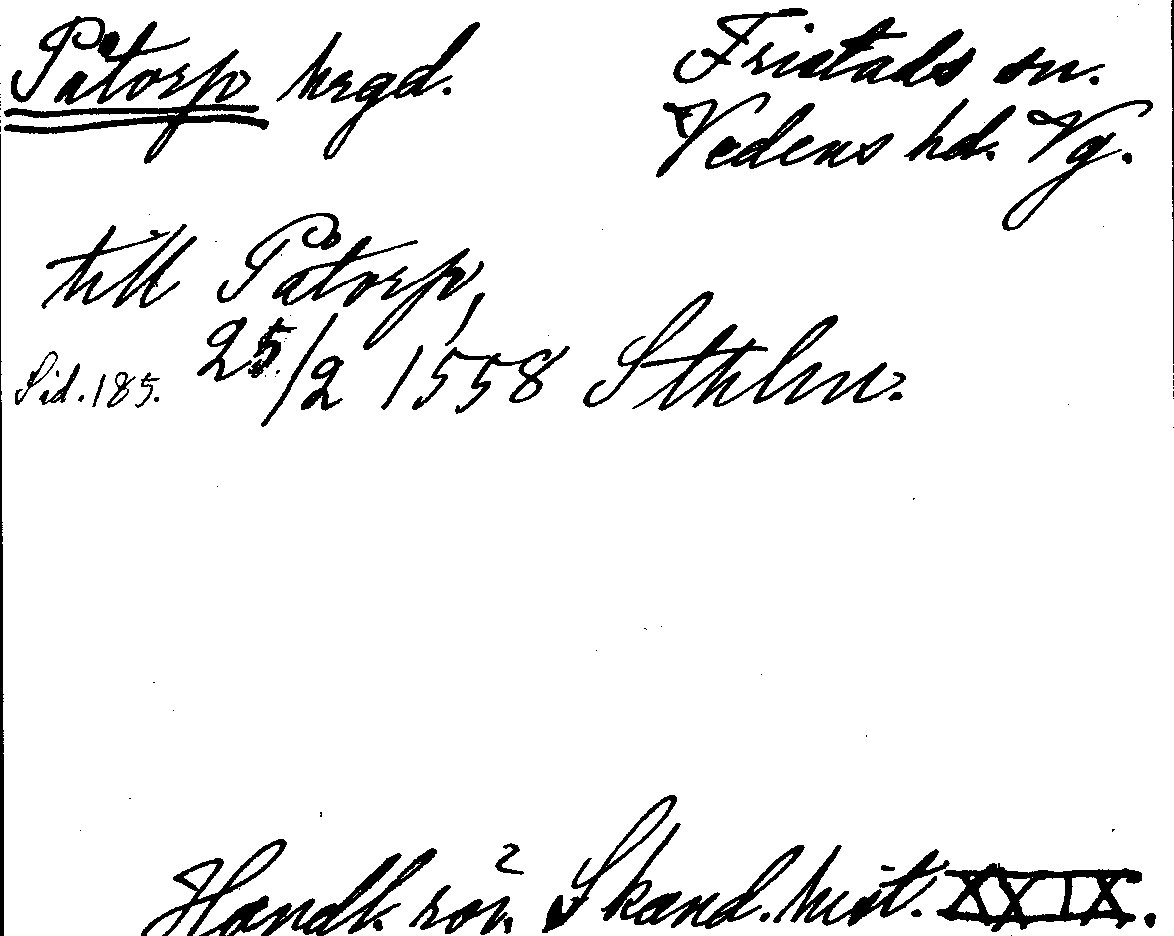 Påtorp hrgd.
Fristads sn.
Vedens hd. Vg.
till Påtorp,
Sid. 185. 25/2 1558 Sthlm.
Handl. rör. Skand. hist. XXIX.